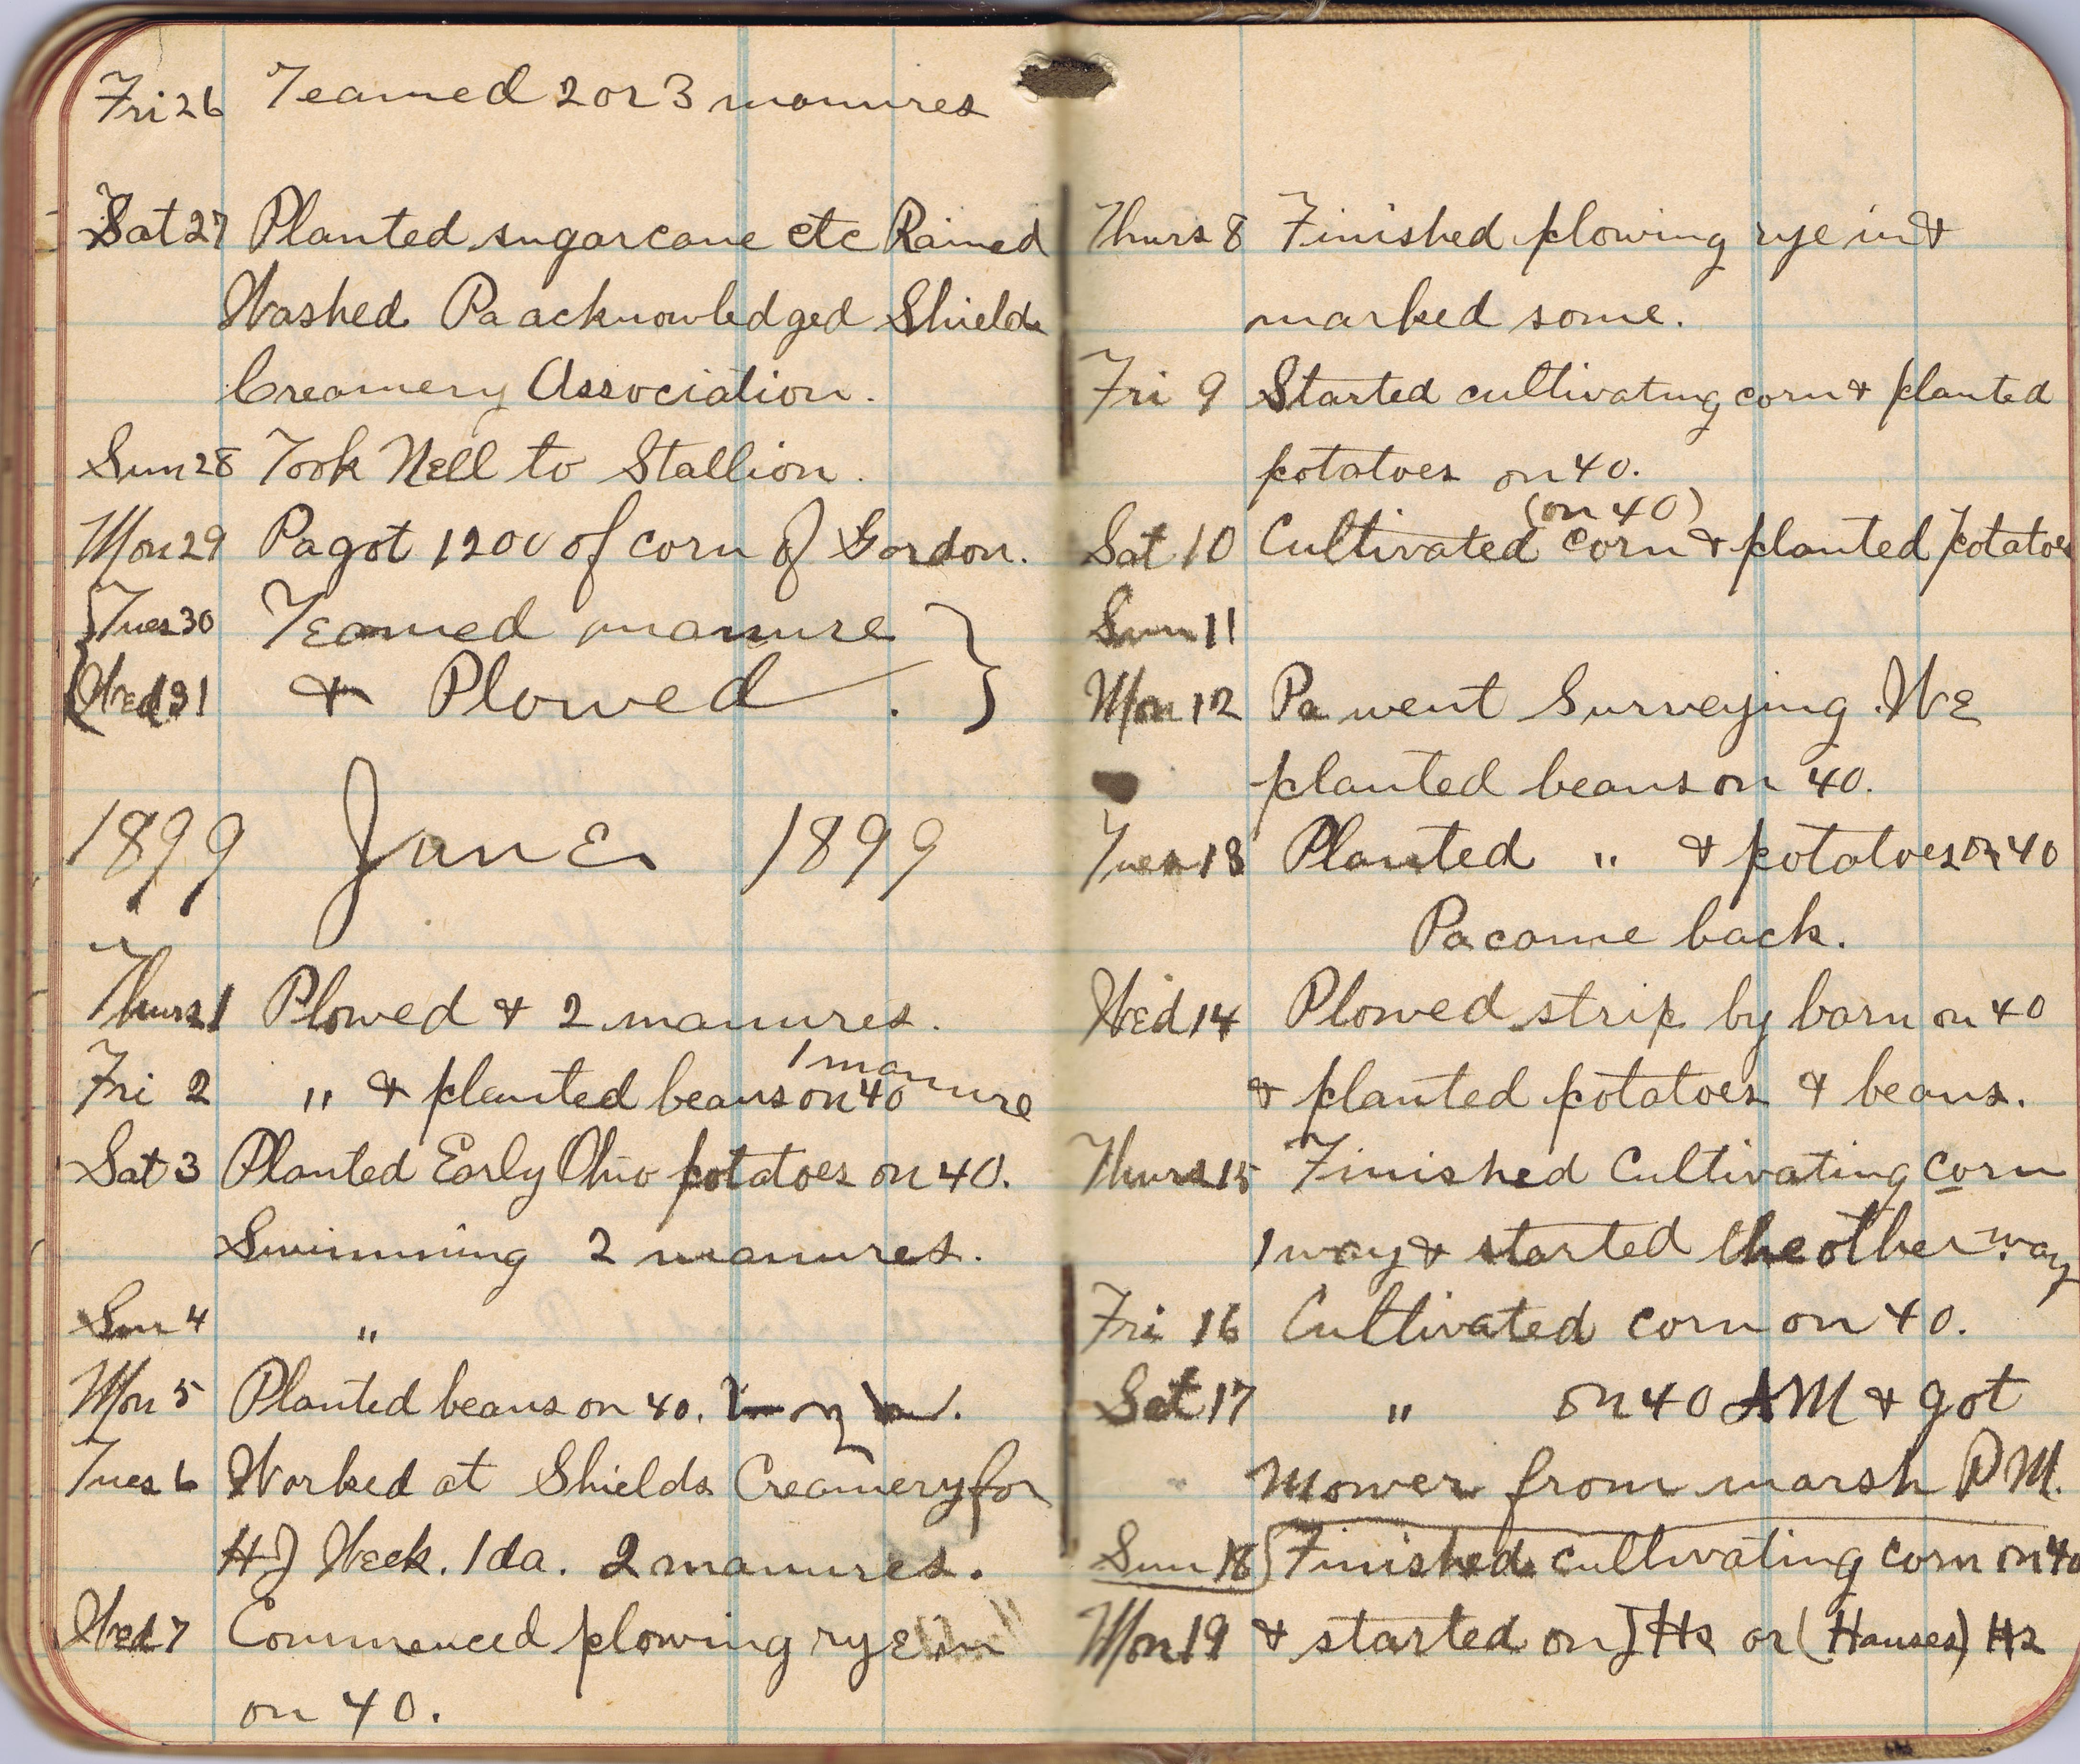 Fri 26 Teamed 2 or 3 manures
Sat 27 Planted sugarcane etc Rained
Washed Pa acknowledged Shields
Creamery Association.
Sun 28 Took Nell to Stallion.
Mon 29 Pa got 1200 of corn of Gordon.
Tues 30 Teamed manure
Wed 31 & Plowed.
1899 June 1899
Thurs 1 Plowed & 2 manures.
1 manure
Fri 2 " & planted beans on 40
Sat 3 Planted Early Ohio potatoes on 40.
Swimming 2 manures.
Sun 4 "
Mon 5 Planted beans on 40.
Tues 6 Worked at Shields Creamery for
HJ Week. 1 da. 2 manures.
Wed 7 Commenced plowing rye in
on 40.
Thurs 8 Finished plowing rye in &
marked some.
Fri 9 Started cultivating corn & planted
potatoes on 40.
(on 40)
Sat 10 Cultivated corn & planted potatoes
Sun 11
Mon 12 Pa went Surveying. We
planted beans on 40.
Tues 13 Planted " & potatoes on 40
Pa came back.
Wed 14 Plowed strip by barn on 40
& planted potatoes & beans.
Thurs 15 Finished Cultivating corn
1 way & started the other way
Fri 16 Cultivated corn on 40.
Sat 17 " on 40 AM & got
Mower from marsh PM.
Sun 18 Finished cultivating corn on 40
Mon 19 & started on or (Hauses)